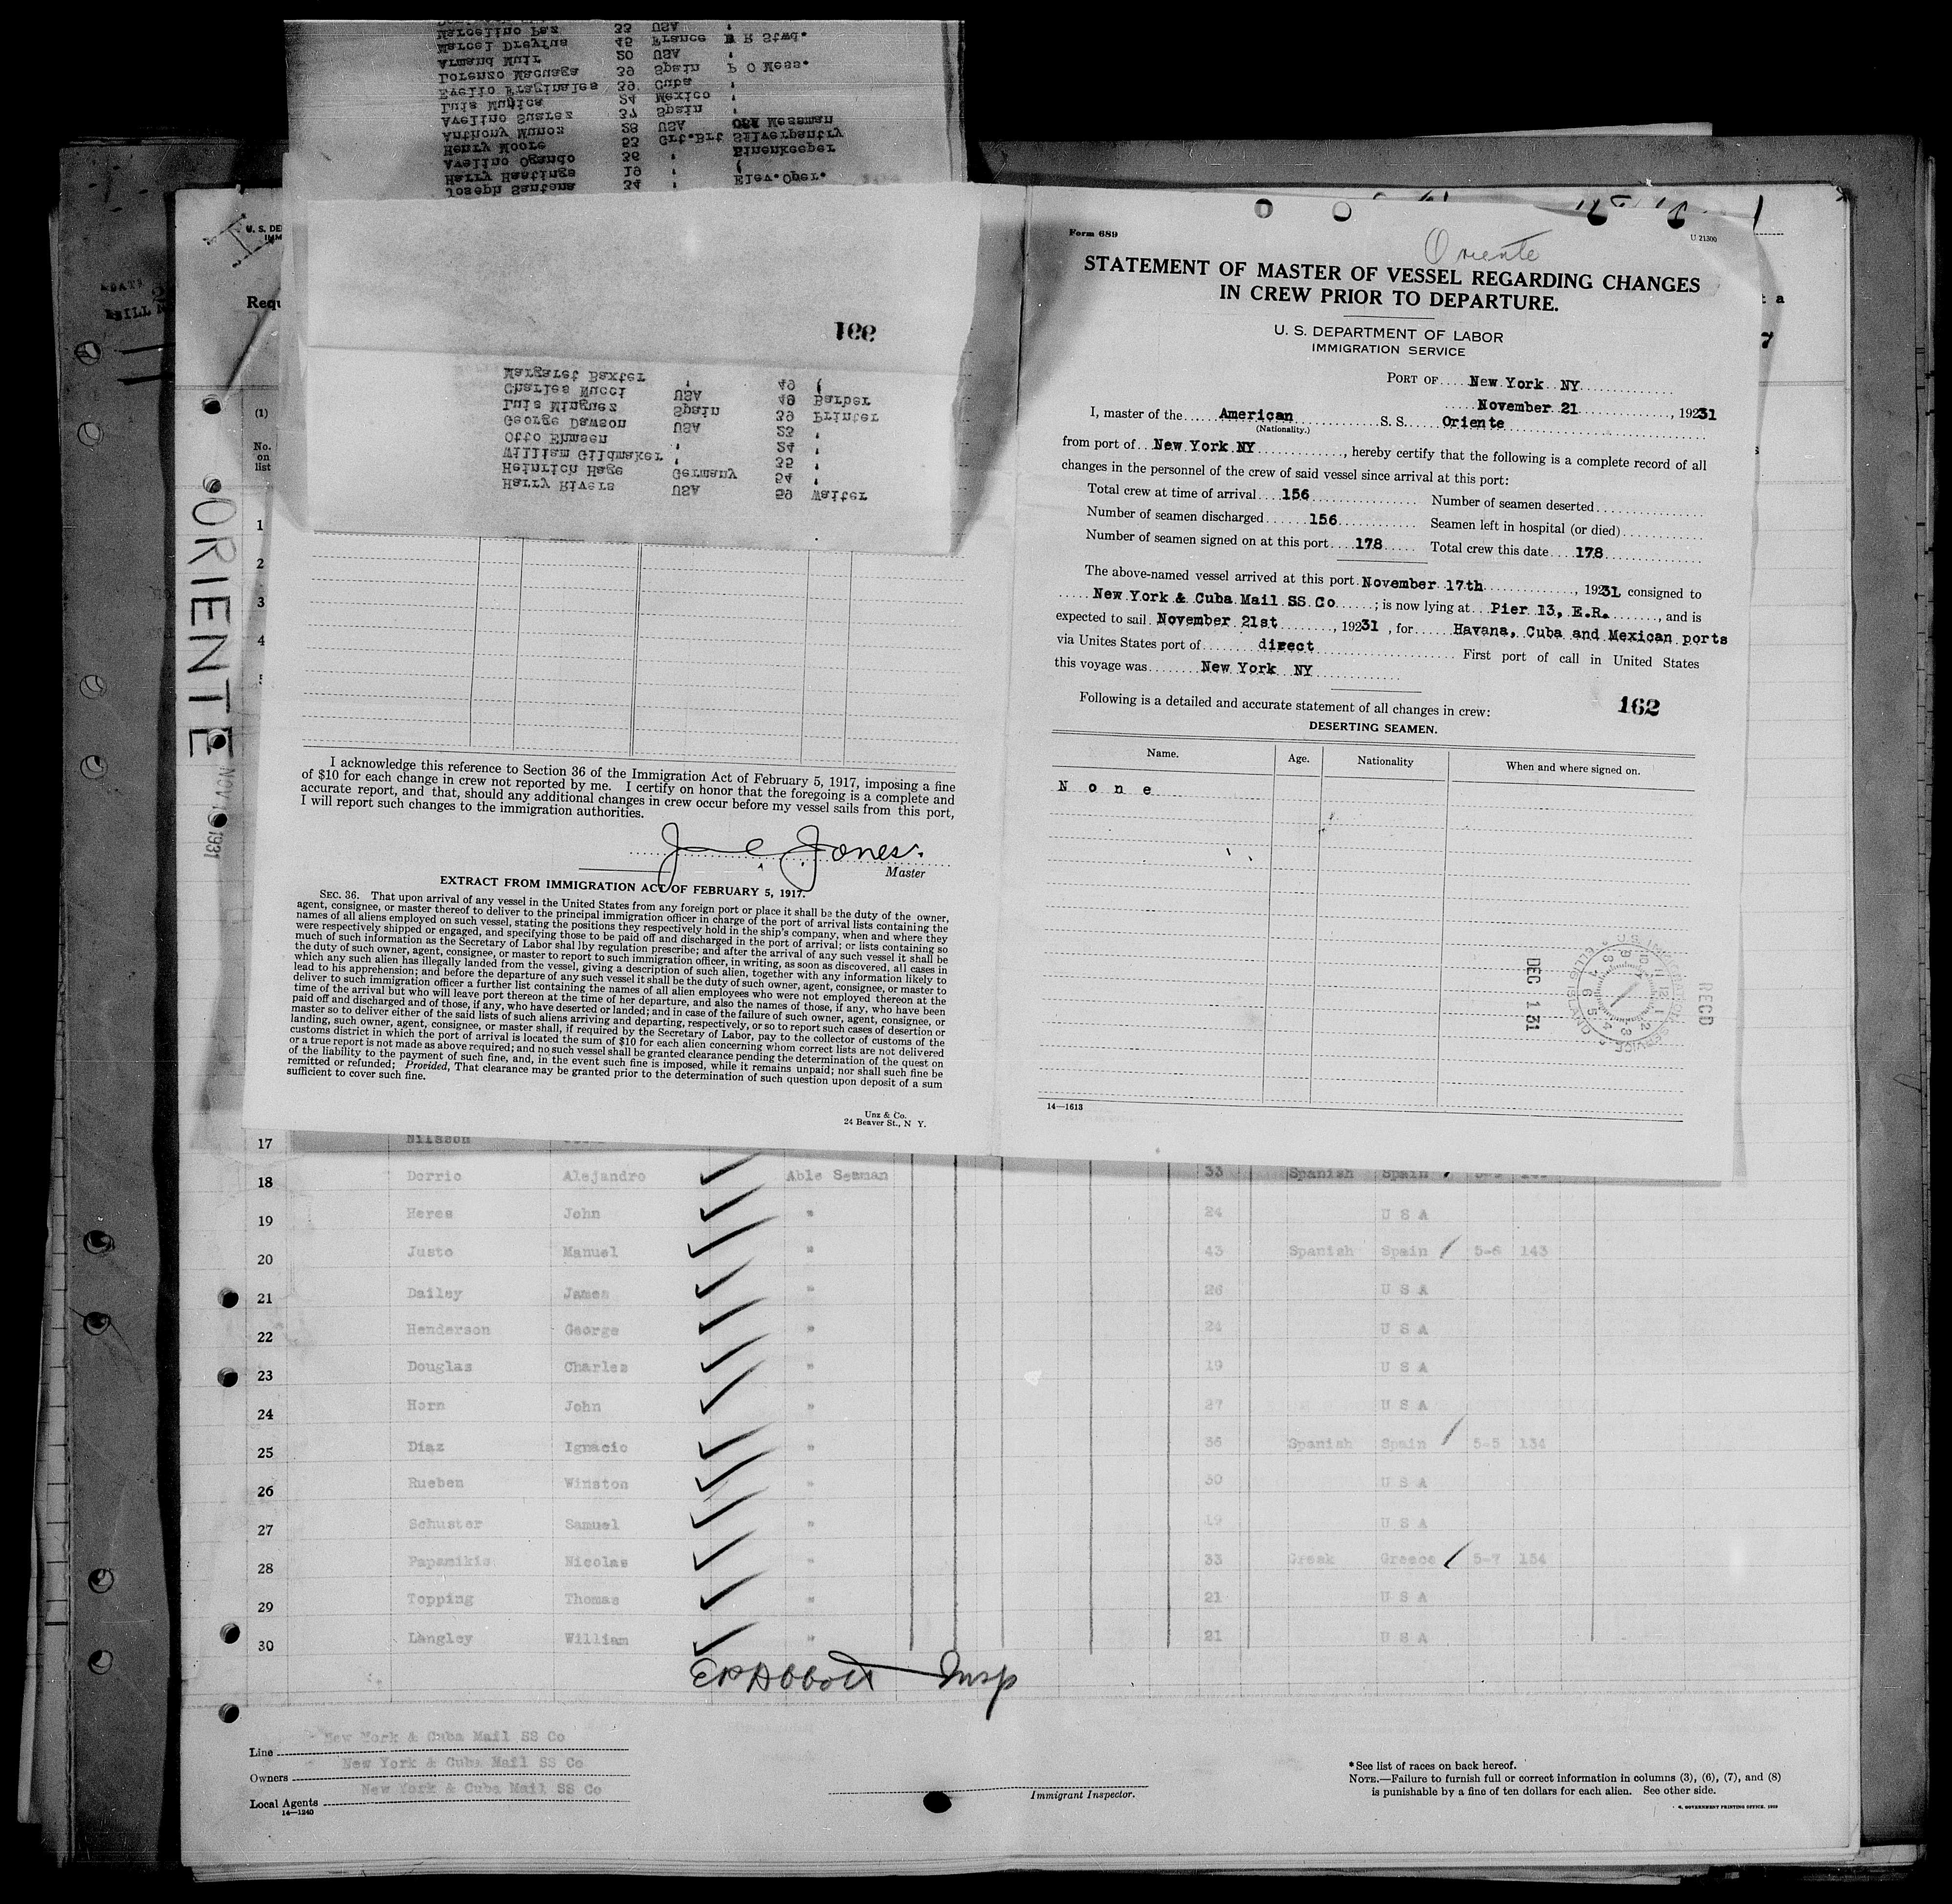 Marcelino Paz 33 USA "
Marcel Dreyfus 45 France B R Stwd.
Armand Muir 20 USA "
Lorenzo Macuaga 39 Spain P O Mess.
Evelio Fraginales 39 Cuba "
Luis Muñica 24 Mexico "
Avelino Suarez 37 Spain "
Anthony Munoz 28 USA Messman
Henry Moore 53 Grt.Brt Silverpantry
Avelino Ogando 36 " Linenkeeper
Harry Hastings 19 "
Joseph Santana 34 " Elev.Oper.
166
Margaret Baxter " 49
Charles Nucci USA 49 Barber
Luis Minguez Spain 39 Printer
George Dawson USA 23 "
Otto Ehmsen " 24 "
William Gildmaker " 35 "
Heinrich Hage Germany 54 "
Harry Rivers USA 59 Waiter
U. S. DE
IMM
Requ
(1)
No.
on
list
1
2
3
4
ORIENTE
NOV 1931
I acknowledge this reference to Section 36 of the Immigration Act of February 5, 1917, imposing a fine
of $10 for each change in crew not reported by me. I certify on honor that the foregoing is a complete and
accurate report, and that, should any additional changes in crew occur before my vessel sails from this port,
I will report such changes to the immigration authorities.
J E Jones.
Master
EXTRACT FROM IMMIGRATION ACT OF FEBRUARY 5, 1917.
SEC. 36. That upon arrival of any vessel in the United States from any foreign port or place it shall be the duty of the owner,
agent, consignee, or master thereof to deliver to the principal immigration officer in charge of the port of arrival lists containing the
names of all aliens employed on such vessel, stating the positions they respectively hold in the ship's company, when and where they
were respectively shipped or engaged, and specifying those to be paid off and discharged in the port of arrival; or lists containing so
much of such information as the Secretary of Labor shal lby regulation prescribe; and after the arrival of any such vessel it shall be
the duty of such owner, agent, consignee, or master to report to such immigration officer, in writing, as soon as discovered, all cases in
which any such alien has illegally landed from the vessel, giving a description of such alien, together with any information likely to
lead to his apprehension; and before the departure of any such vessel it shall be the duty of such owner, agent, consignee, or master to
deliver to such immigration officer a further list containing the names of all alien employees who were not employed thereon at the
time of the arrival but who will leave port thereon at the time of her departure, and also the names of those, if any, who have been
paid off and discharged and of those, if any, who have deserted or landed; and in case of the failure of such owner, agent, consignee, or
master so to deliver either of the said lists of such aliens arriving and departing, respectively, or so to report such cases of desertion or
landing, such owner, agent, consignee, or master shall, if required by the Secretary of Labor, pay to the collector of customs of the
customs district in which the port of arrival is located the sum of $10 for each alien concerning whom correct lists are not delivered
or a true report is not made as above required; and no such vessel shall be granted clearance pending the determination of the quest on
of the liability to the payment of such fine, and, in the event such fine is imposed, while it remains unpaid; nor shall such fine be
remitted or refunded; Provided, That clearance may be granted prior to the determination of such question upon deposit of a sum
sufficient to cover such fine.
Unz & Co.
24 Beaver St., N Y.
Form 689
U 21300
Oriente
STATEMENT OF MASTER OF VESSEL REGARDING CHANGES
IN CREW PRIOR TO DEPARTURE.
U. S. DEPARTMENT OF LABOR
IMMIGRATION SERVICE
PORT OF New York NY
November 21, 1931
I, master of the American S. S. Oriente
(Nationality.)
from port of New York NY, hereby certify that the following is a complete record of all
changes in the personnel of the crew of said vessel since arrival at this port:
Total crew at time of arrival 156 Number of seamen deserted
Number of seamen discharged 156 Seamen left in hospital (or died)
Number of seamen signed on at this port 178 Total crew this date 178
The above-named vessel arrived at this port November 17th, 1931 consigned to
New York & Cuba Mail SS Co; is now lying at Pier 13, E.R., and is
expected to sail November 21st, 1931, for Havana, Cuba and Mexican ports
via Unites States port of direct First port of call in United States
this voyage was New York NY
Following is a detailed and accurate statement of all changes in crew:
162
DESERTING SEAMEN.
Name. Age. Nationality When and where signed on.
N o n e
RECD
U.S. IMMIGRATION SERVICE ELLIS ISLAND
DEC 1 31
14—1613
17 Nilsson
18 Dorrio Alejandro Able Seaman 33 Spanish Spain
19 Heres John " 24 U S A
20 Justo Manuel " 43 Spanish Spain 5-6 143
21 Dailey James " 26 U S A
22 Henderson George " 24 U S A
23 Douglas Charles " 19 U S A
24 Horn John " 27 U S A
25 Diaz Ignacio " 36 Spanish Spain 5-5 134
26 Rueben Winston " 30 U S A
27 Schuster Samuel " 19 U S A
28 Papamikis Nicolas " 33 Greek Greece 5-7 154
29 Topping Thomas " 21 U S A
30 Langley William " 21 U S A
EP Abbott Insp
Line New York & Cuba Mail SS Co
Owners New York & Cuba Mail SS Co
Local Agents New York & Cuba Mail SS Co
14—1240
Immigrant Inspector.
*See list of races on back hereof.
NOTE.—Failure to furnish full or correct information in columns (3), (6), (7), and (8)
is punishable by a fine of ten dollars for each alien. See other side.